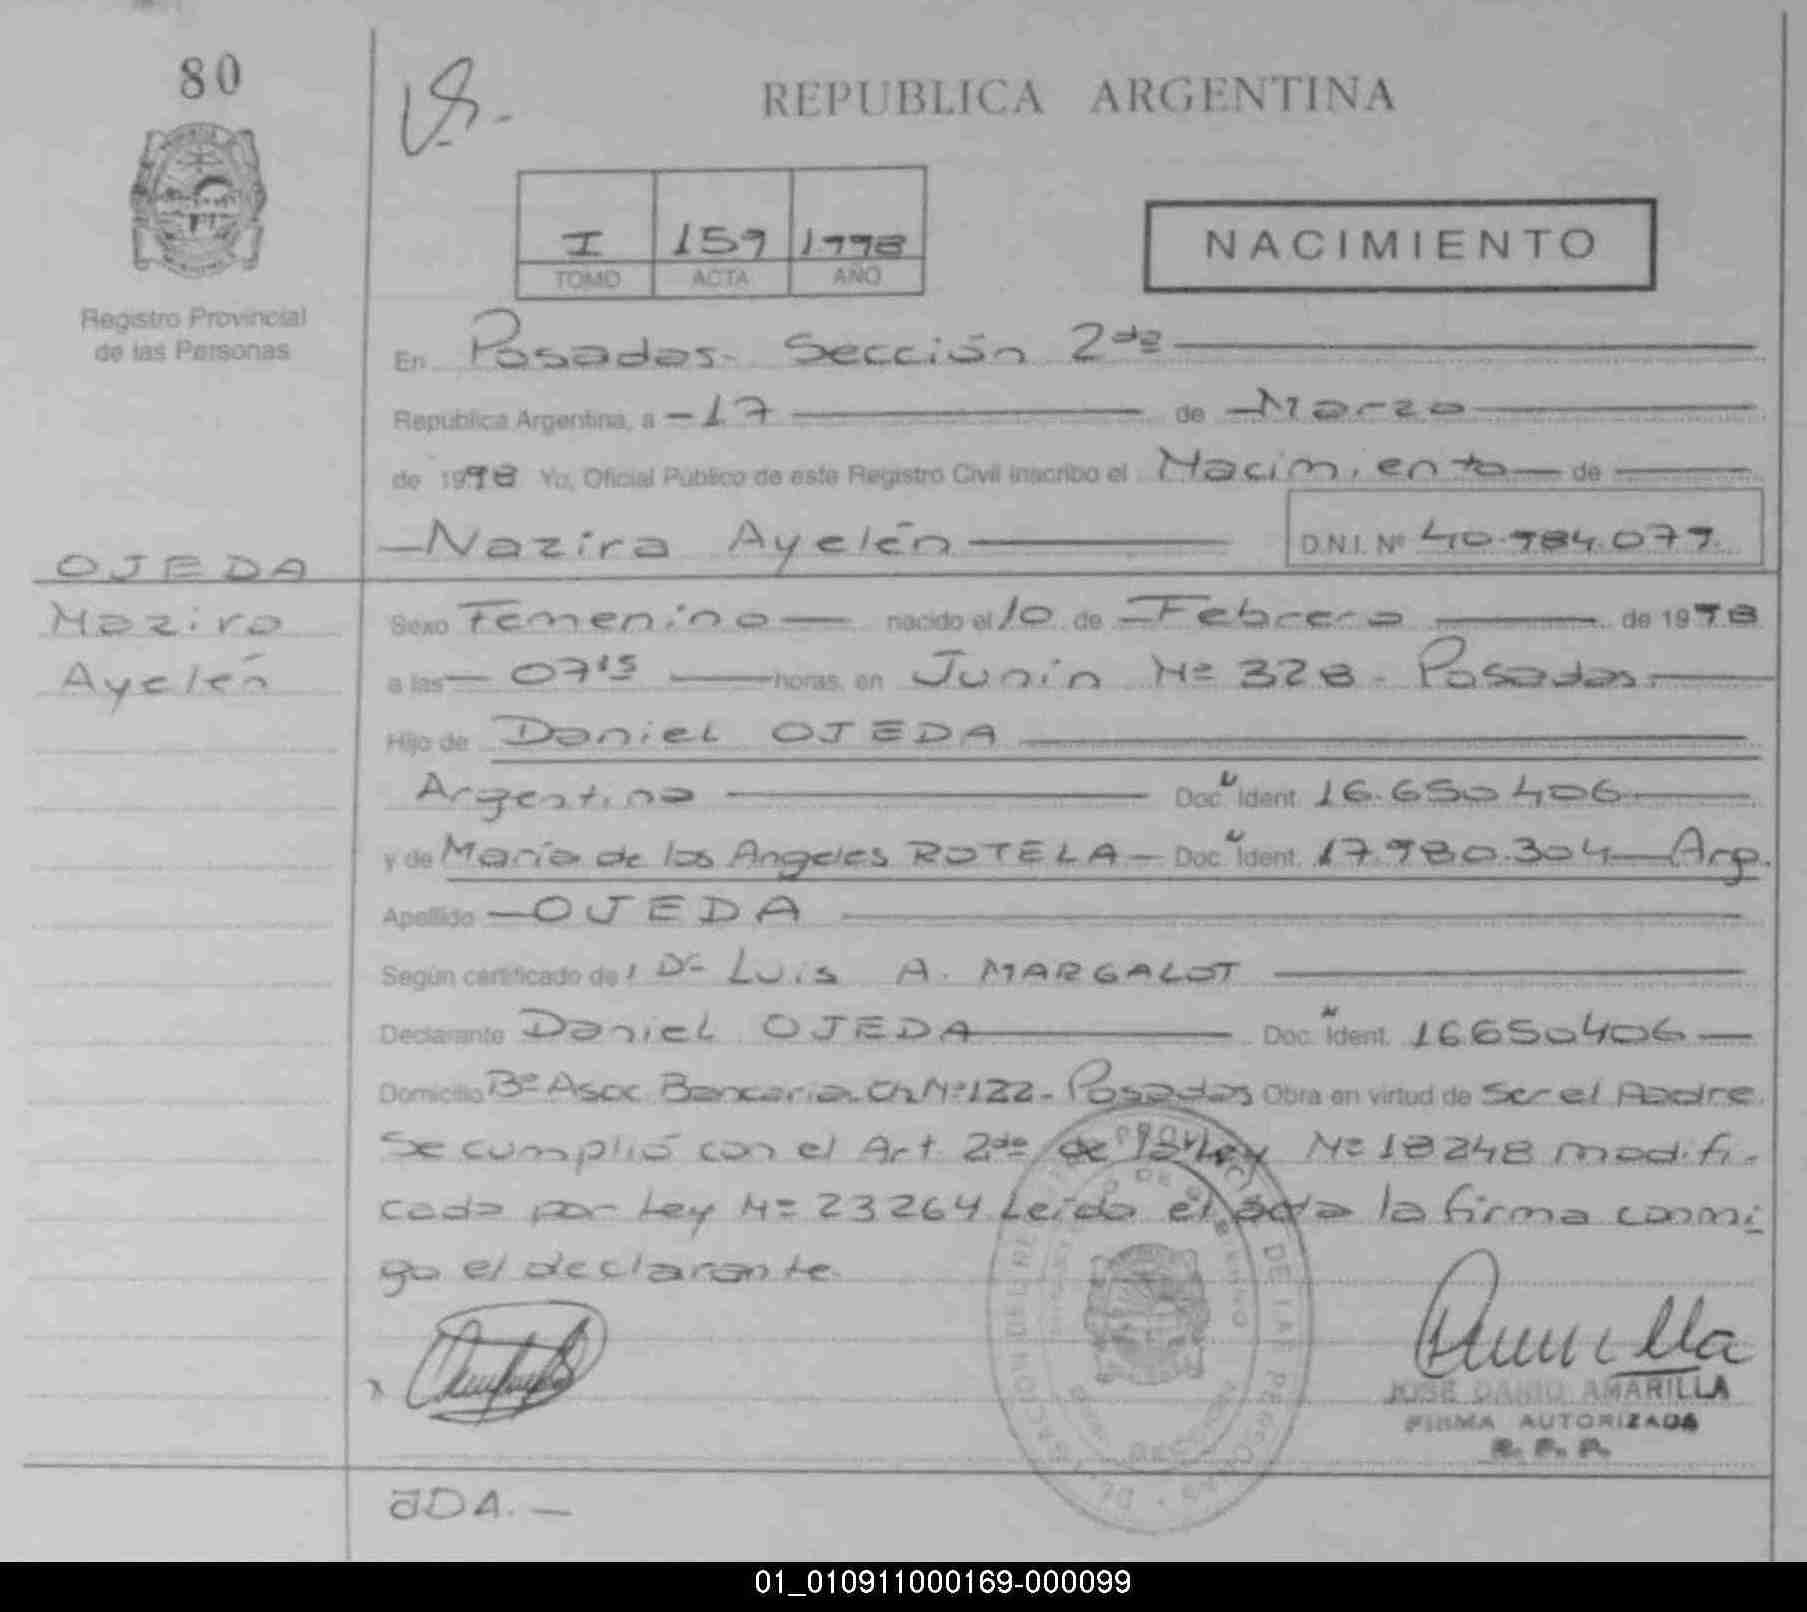 80
REPUBLICA ARGENTINA
I 159 1998
TOMO ACTA AÑO
NACIMIENTO
Registro Provincial
de las Personas
En Posadas- Sección 2da
República Argentina, a -17 de Marzo
de 1998 Yo, Oficial Público de este Registro Civil inscribo el Nacimiento de
Nazira Ayelén D.N.I. Nº 40.984.079.
OJEDA
Nazira
Ayelén
Sexo Femenino nacido el 10 de Febrero de 1998
a las 07 15 horas, en Junín Nº 328 - Posadas.
Hijo de Daniel OJEDA
Argentina Doc. Ident. 16.650.406
y de María de los Angeles ROTELA - Doc. Ident. 17.980.304 Arg.
Apellido OJEDA
Según certificado de: Dr. Luis A. MARGALOT
Declarante Daniel OJEDA Doc. Ident. 16650406
Domicilio Bº Asoc. Bancaria Ch Nº 122 - Posadas Obra en virtud de ser el Padre.
Se cumplió con el Art. 2do de la Ley Nº 18248 modifi-
cada por Ley Nº 23264 Leída el acta la firma conmi
go el declarante.
JOSE DARIO AMARILLA
FIRMA AUTORIZADA
R. P. P.
JDA.-
01_010911000169-000099